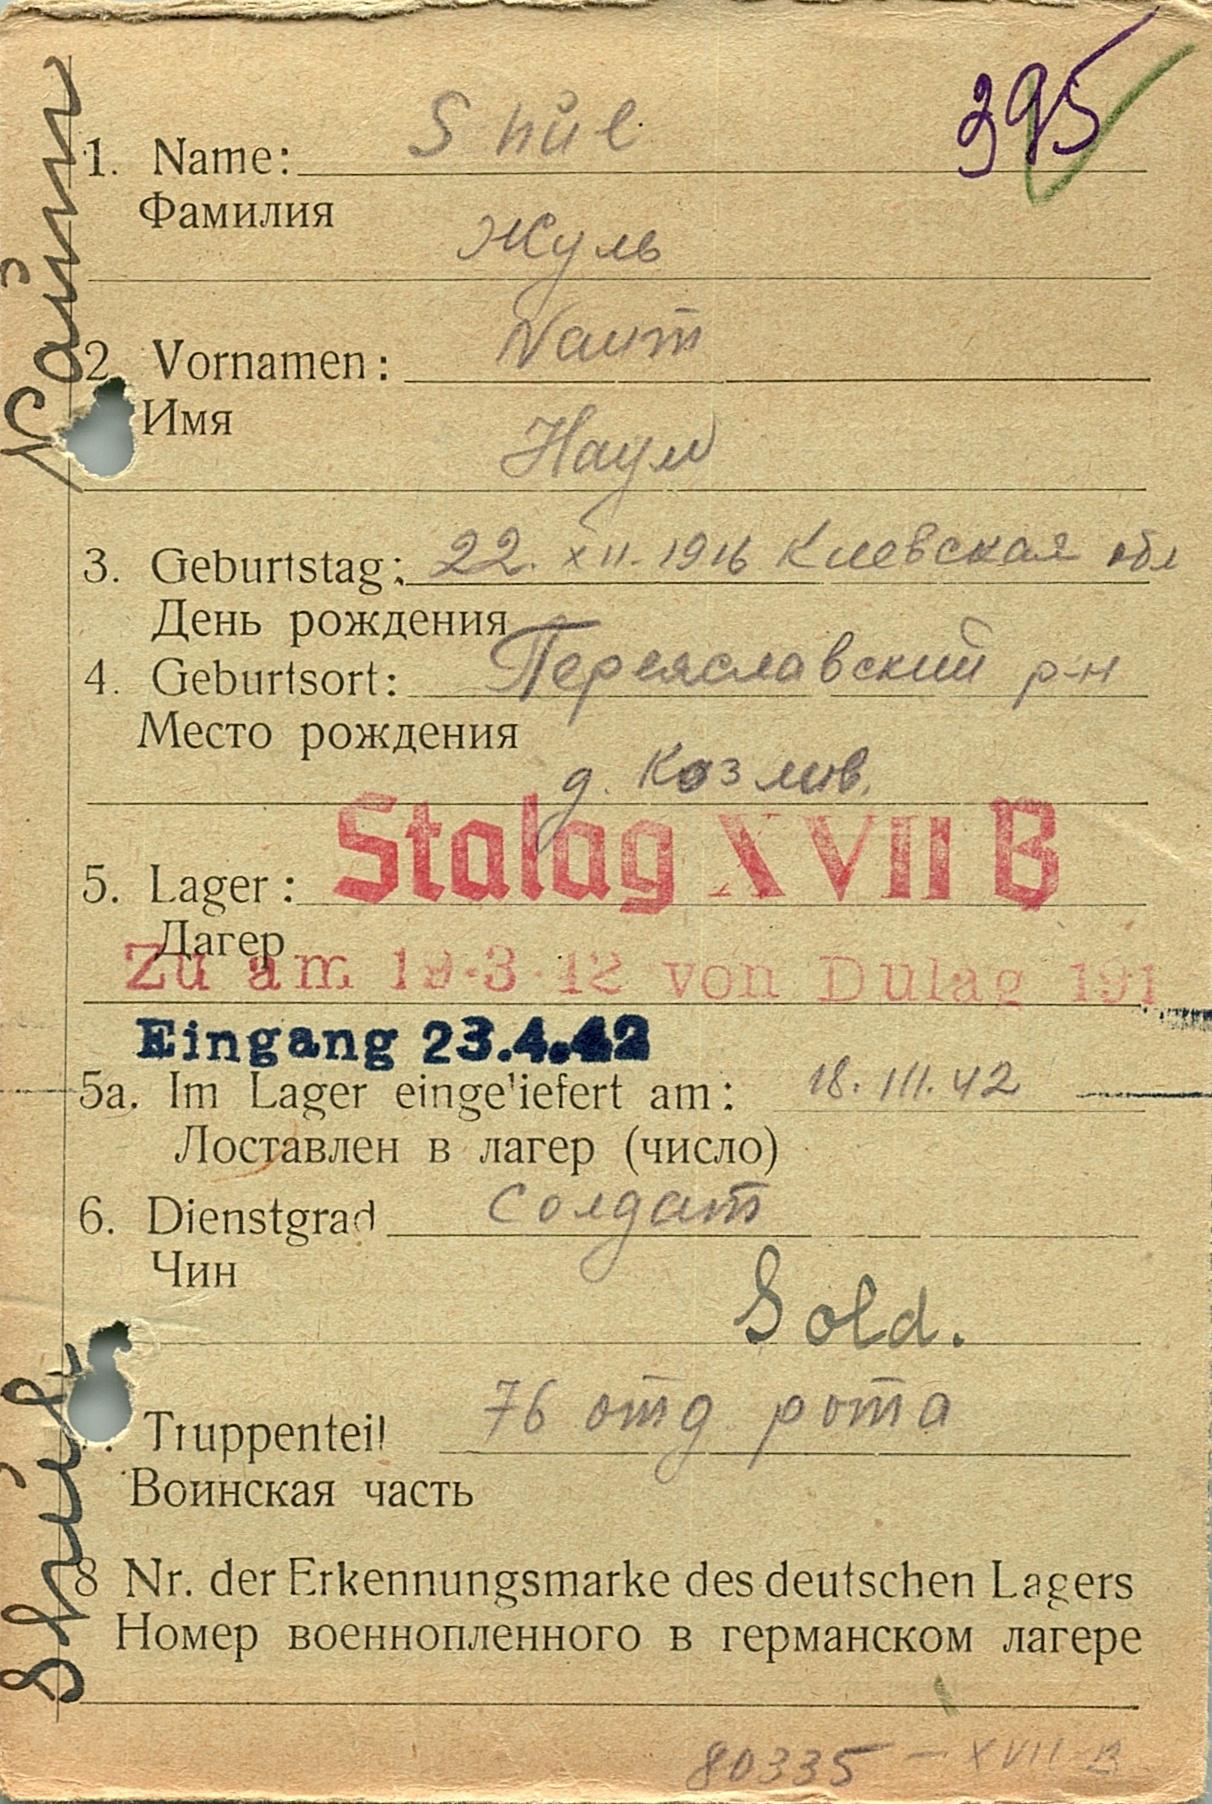 395
1. Name: Shül
Фамилия
Жуль
2 Vornamen: Naum
Имя
Наум
3. Geburtstag: 22. XII. 1916 Киевская обл
День рождения
4. Geburtsort: Переяславский р-н
Место рождения
д. Козлив.
Stalag XVII B
5. Lager:
Лагер
Zu am 19.3.42 von Dulag 191
Eingang 23.4.42
5a. Im Lager eingeliefert am: 18. III. 42
Доставлен в лагер (число)
6. Dienstgrad солдат
Чин
Sold.
Truppenteil 76 отд рота
Воинская часть
8 Nr. der Erkennungsmarke des deutschen Lagers
Номер военнопленного в германском лагере
80335 – XVII B
Shül, Naum